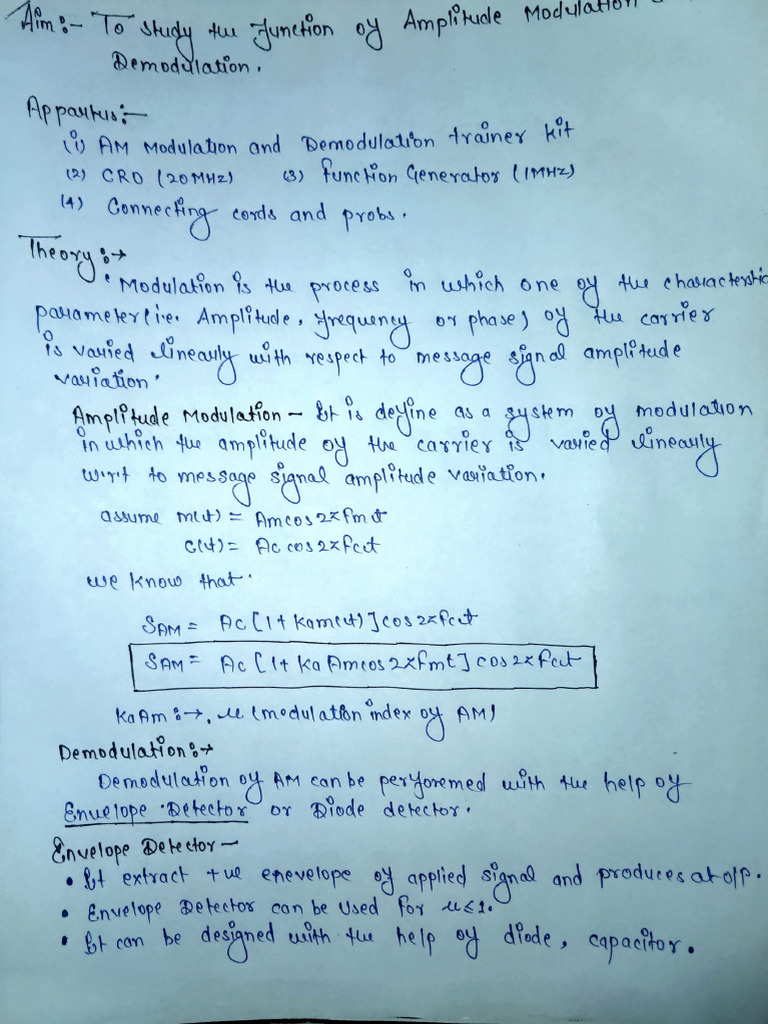 Aim:- To study the function of Amplitude Modulation
Demodulation.
Appartus:-
(1) AM Modulation and Demodulation trainer kit
(2) CRO (20MHz) (3) Function Generator (1MHz)
(4) Connecting cords and probs.
Theory:→
Modulation is the process in which one of the characteristic
parameter (i.e. Amplitude, frequency or phase) of the carrier
is varied linearly with respect to message signal amplitude
variation.
Amplitude Modulation - It is define as a system of modulation
in which the amplitude of the carrier is varied linearly
w.r.t to message signal amplitude variation.
assume m(t) = Am cos 2πfmt
c(t) = Ac cos 2πfct
we know that.
SAM = Ac [1+ Kam(t)] cos 2πfct
SAM = Ac [1+ Ka Amcos 2πfmt] cos 2πfct
KaAm :→, μ (modulation index of AM)
Demodulation:→
Demodulation of AM can be perforemed with the help of
Envelope Detector or Diode detector.
Envelope Detector -
• It extract +ve enevelope of applied signal and produces at o/p.
• Envelope Detector can be used for μ≤1.
• It can be designed with the help of diode, capacitor.